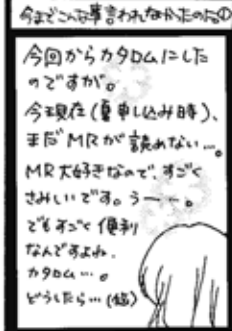 今までこんな事言われなかったのに①
今回からカタロムにした
のですが。
今現在(夏申し込み時)、
まだMRが読めない…。
MR大好きなので、すごく
さみしいです。うーー…。
でもすごく便利
なんですよね、
カタロム…。
どうしたら…(悩)